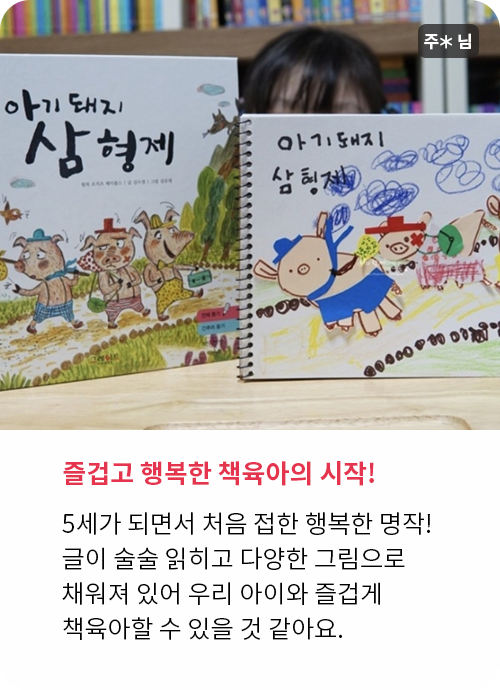 주* 님
아기돼지
삼형제
아기돼지
삼형제
즐겁고 행복한 책육아의 시작!
5세가 되면서 처음 접한 행복한 명작!
글이 술술 읽히고 다양한 그림으로
채워져 있어 우리 아이와 즐겁게
책육아할 수 있을 것 같아요.